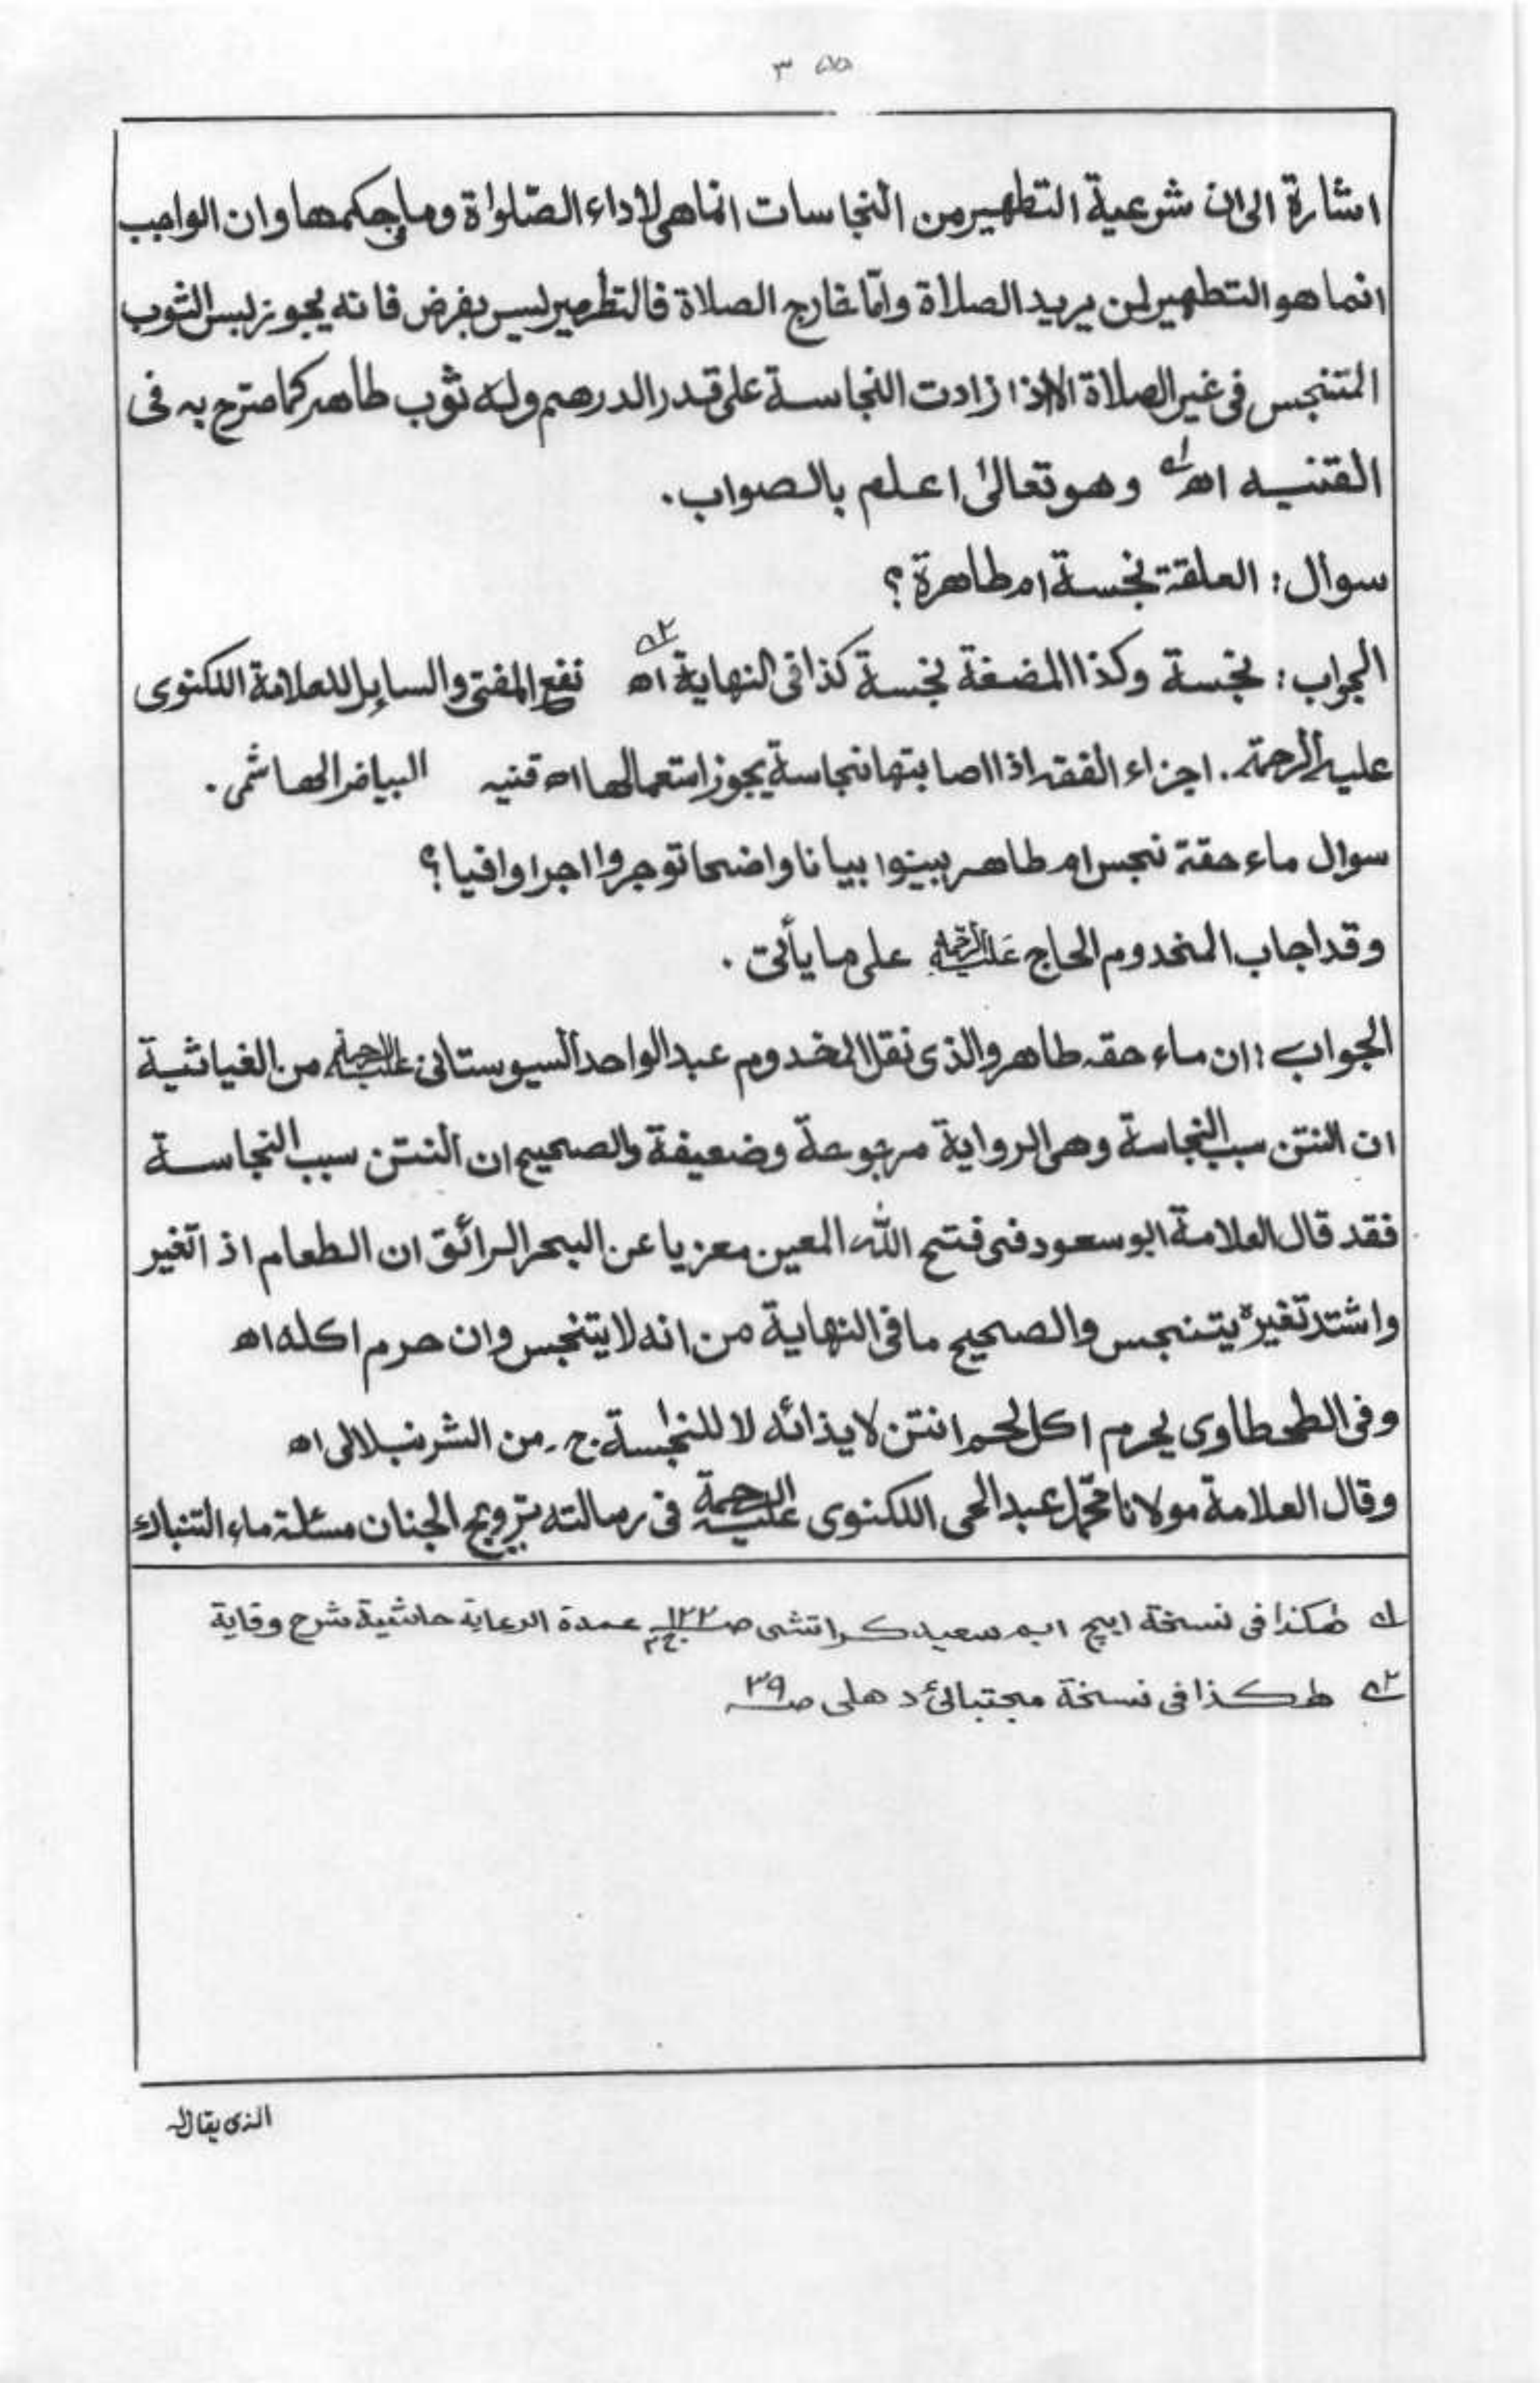 اشارة الى ان شرعية التطهير من النجاسات انما هى لاداء الصّلواة وما يحكمها وان الواجب
انما هو التطهير لمن يريد الصلاة وامّا خارج الصلاة فالتطهير ليس بفرض فانه يجوز لبس الثوب
المتنجس فى غير الصلاة الا اذا زادت النجاسة على قدر الدرهم وله ثوب طاهر كما صرّح به فى
القنيه اھ ؎۱ وهو تعالىٰ اعلم بالصواب.
سوأل: العلقة نجسة ام طاهرة؟
الجواب: نجسة وكذا المضغة نجسة كذا فى النهاية اھ ؎۲ نفع المفتى والسايل للعلامة اللكنوى
عليه الرحمة. اجزاء الفقه اذا اصابتها نجاسة يجوز استعمالها اھ قنيه البياض الهاشمى.
سوال ماء حقة نجس ام طاهر بينوا بيانا واضحا توجروا اجرا وافيا؟
وقد اجاب المخدوم الحاج عليه الرحمة على ما يأتى.
الجواب: ان ماء حقه طاهر والذى نقل المخدوم عبد الواحد السيوستانى عليه الرحمة من الغياثية
ان النتن سبب النجاسة وهى الرواية مرجوعة وضعيفة والصحيح ان النتن سبب النجاسة
فقد قال العلامة ابو سعود فى فتح الله المعين معزيا عن البحر الرائق ان الطعام اذ اتغير
واشتد تغيره يتنجس والصحيح ما فى النهاية من انه لا يتنجس وان حرم اكله اھ
وفى الطحطاوى يحرم اكل لحم انتن لايذائه لا للنجسة ج. من الشرنبلالى اھ
وقال العلامة مولانا محمد عبد الحى اللكنوى عليه الرحمة فى رسالته ترويح الجنان مسئلة ماء التنباك
؎۱ هٰكذا فى نسخة ايچ ايم سعيد كراتشى صـ۱۲۲ ج۲ عمدة الرعاية حاشية شرح وقاية
؎۲ هٰكذا فى نسخة مجتبائى دهلى صـ۳۹
الذى يقال له